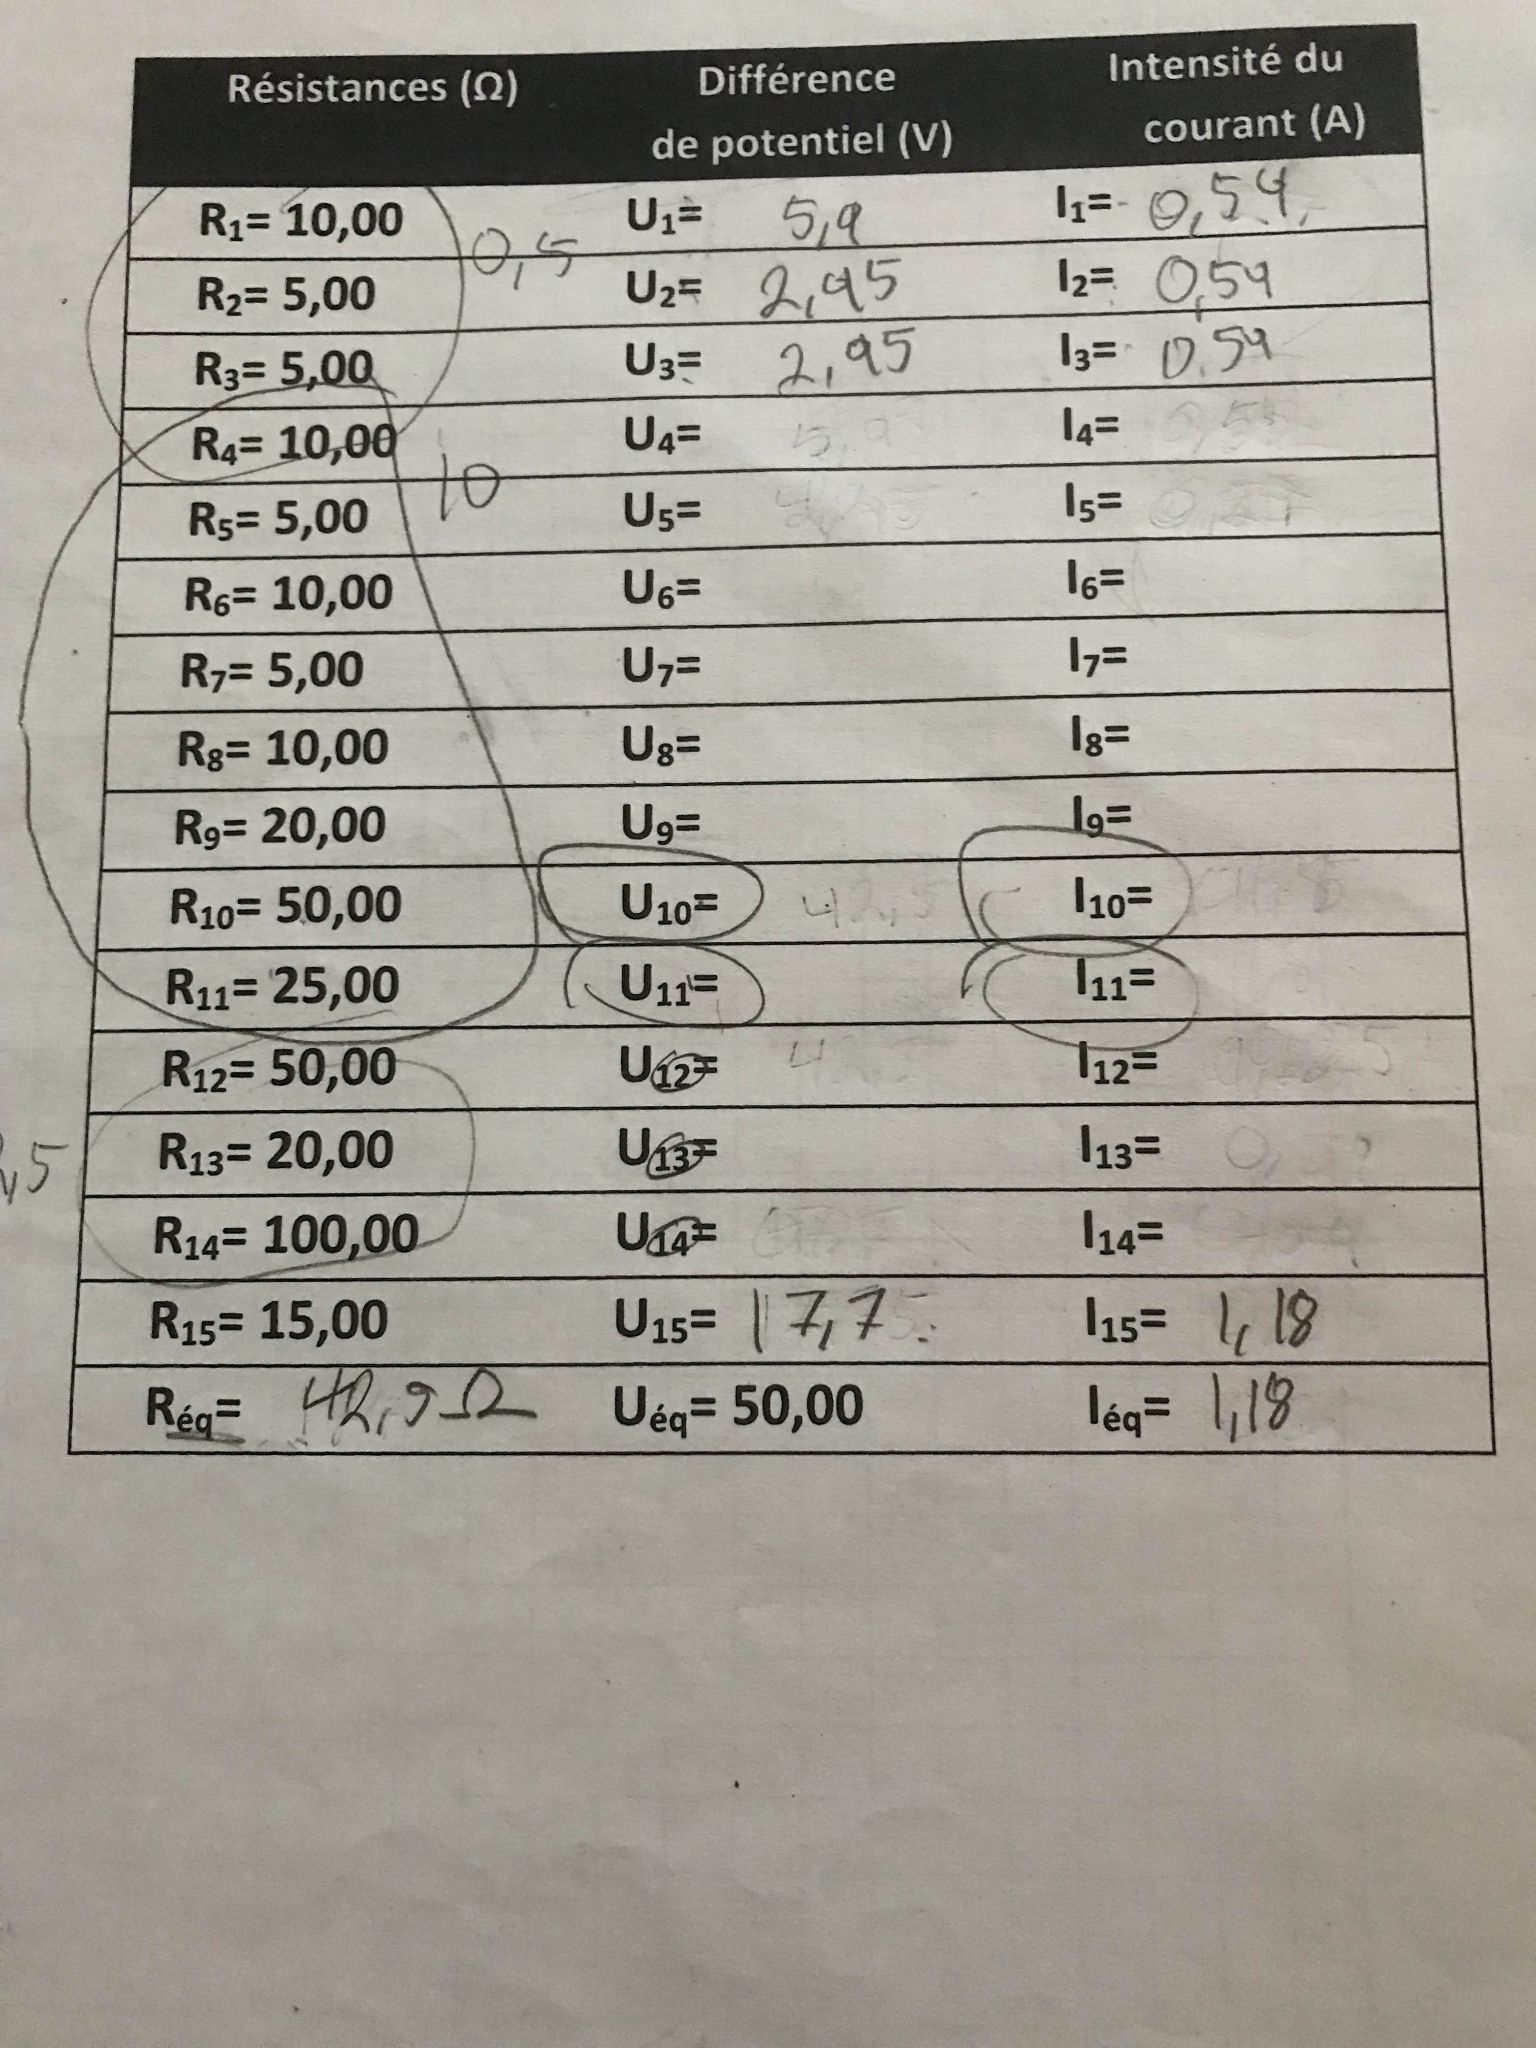 Résistances (Ω) Différence de potentiel (V) Intensité du courant (A)
R1= 10,00 0,5 U1= 5,9 I1= 0,59
R2= 5,00 U2= 2,95 I2= 0,59
R3= 5,00 U3= 2,95 I3= 0,59
R4= 10,00 10 U4= I4=
R5= 5,00 U5= I5=
R6= 10,00 U6= I6=
R7= 5,00 U7= I7=
R8= 10,00 U8= I8=
R9= 20,00 U9= I9=
R10= 50,00 U10= 42,5 I10=
R11= 25,00 U11= I11=
R12= 50,00 U12= I12=
R13= 20,00 U13= I13=
R14= 100,00 U14= I14=
R15= 15,00 U15= 17,7 I15= 1,18
Réq= 42,9 Ω Uéq= 50,00 Iéq= 1,18